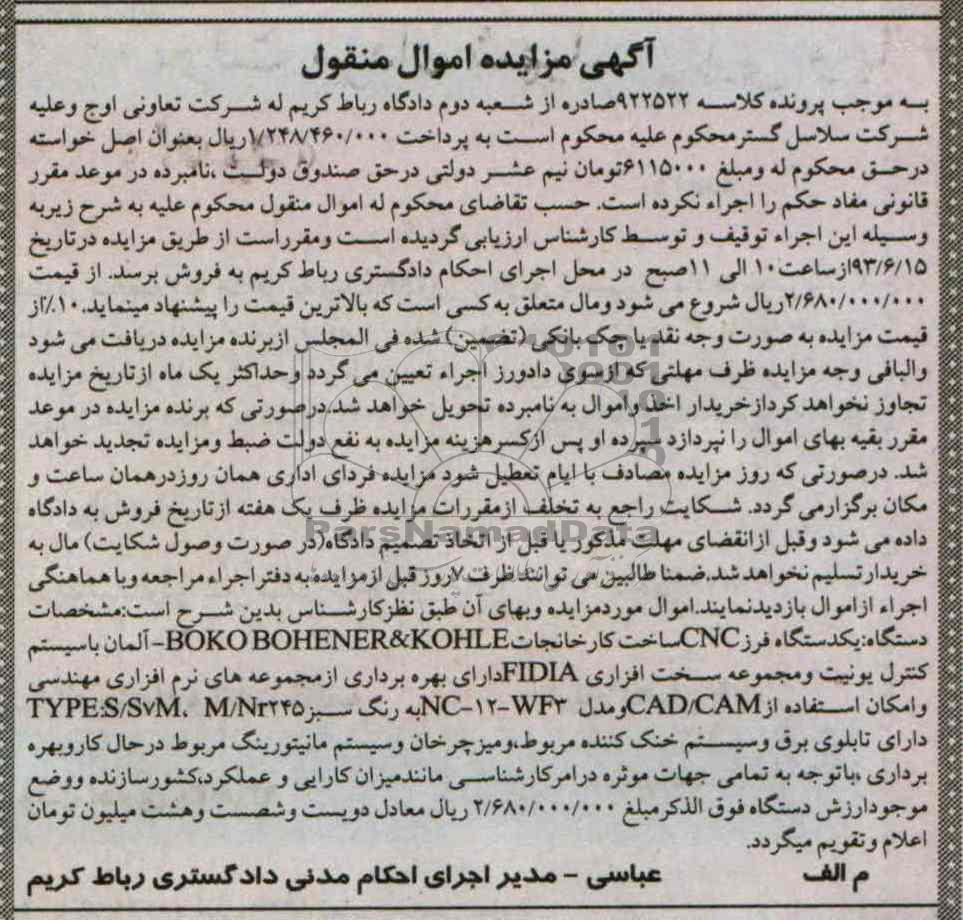 آگهی مزایده اموال منقول
به موجب پرونده کلاسه ۹۲۲۵۲۲صادره از شعبه دوم دادگاه رباط کریم له شرکت تعاونی اوج وعلیه
شرکت سلاسل گسترمحکوم علیه محکوم است به پرداخت ۱/۲۴۸/۴۶۰/۰۰۰ریال بعنوان اصل خواسته
درحق محکوم له ومبلغ ۶۱۱۵۰۰۰تومان نیم عشر دولتی درحق صندوق دولت ،نامبرده در موعد مقرر
قانونی مفاد حکم را اجراء نکرده است. حسب تقاضای محکوم له اموال منقول محکوم علیه به شرح زیربه
وسیله این اجراء توقیف و توسط کارشناس ارزیابی گردیده است ومقرراست از طریق مزایده درتاریخ
۹۳/۶/۱۵ازساعت۱۰ الی ۱۱صبح در محل اجرای احکام دادگستری رباط کریم به فروش برسد. از قیمت
۲/۶۸۰/۰۰۰/۰۰۰ریال شروع می شود ومال متعلق به کسی است که بالاترین قیمت را پیشنهاد مینماید. ۱۰٪از
قیمت مزایده به صورت وجه نقد یا چک بانکی (تضمین) شده فی المجلس ازبرنده مزایده دریافت می شود
والباقی وجه مزایده ظرف مهلتی که ازسوی دادورز اجراء تعیین می گردد وحداکثر یک ماه ازتاریخ مزایده
تجاوز نخواهد کردازخریدار اخذ واموال به نامبرده تحویل خواهد شد.درصورتی که برنده مزایده در موعد
مقرر بقیه بهای اموال را نپردازد سپرده او پس ازکسرهزینه مزایده به نفع دولت ضبط ومزایده تجدید خواهد
شد. درصورتی که روز مزایده مصادف با ایام تعطیل شود مزایده فردای اداری همان روزدرهمان ساعت و
مکان برگزارمی گردد. شکایت راجع به تخلف ازمقررات مزایده ظرف یک هفته ازتاریخ فروش به دادگاه
داده می شود وقبل ازانقضای مهلت مذکور یا قبل از اتخاذ تصمیم دادگاه(در صورت وصول شکایت) مال به
خریدارتسلیم نخواهد شد.ضمنا طالبین می توانند ظرف ۷روز قبل ازمزایده به دفتراجراء مراجعه وبا هماهنگی
اجراء ازاموال بازدیدنمایند.اموال موردمزایده وبهای آن طبق نظرکارشناس بدین شرح است:مشخصات
دستگاه:یکدستگاه فرزCNCساخت کارخانجاتBOKO BOHENER&KOHLE-آلمان باسیستم
کنترل یونیت ومجموعه سخت افزاری FIDIAدارای بهره برداری ازمجموعه های نرم افزاری مهندسی
وامکان استفاده ازCAD/CAMومدل NC-۱۲-WF۳به رنگ سبزTYPE:S/S۷M، M/Nr۲۴۵
دارای تابلوی برق وسیستم خنک کننده مربوط،ومیزچرخان وسیستم مانیتورینگ مربوط درحال کاروبهره
برداری ،باتوجه به تمامی جهات موثره درامرکارشناسی مانندمیزان کارایی و عملکرد،کشورسازنده ووضع
موجودارزش دستگاه فوق الذکرمبلغ ۲/۶۸۰/۰۰۰/۰۰۰ ریال معادل دویست وشصست وهشت میلیون تومان
اعلام وتقویم میگردد.
م الف عباسی - مدیر اجرای احکام مدنی دادگستری رباط کریم
ParsNamadData